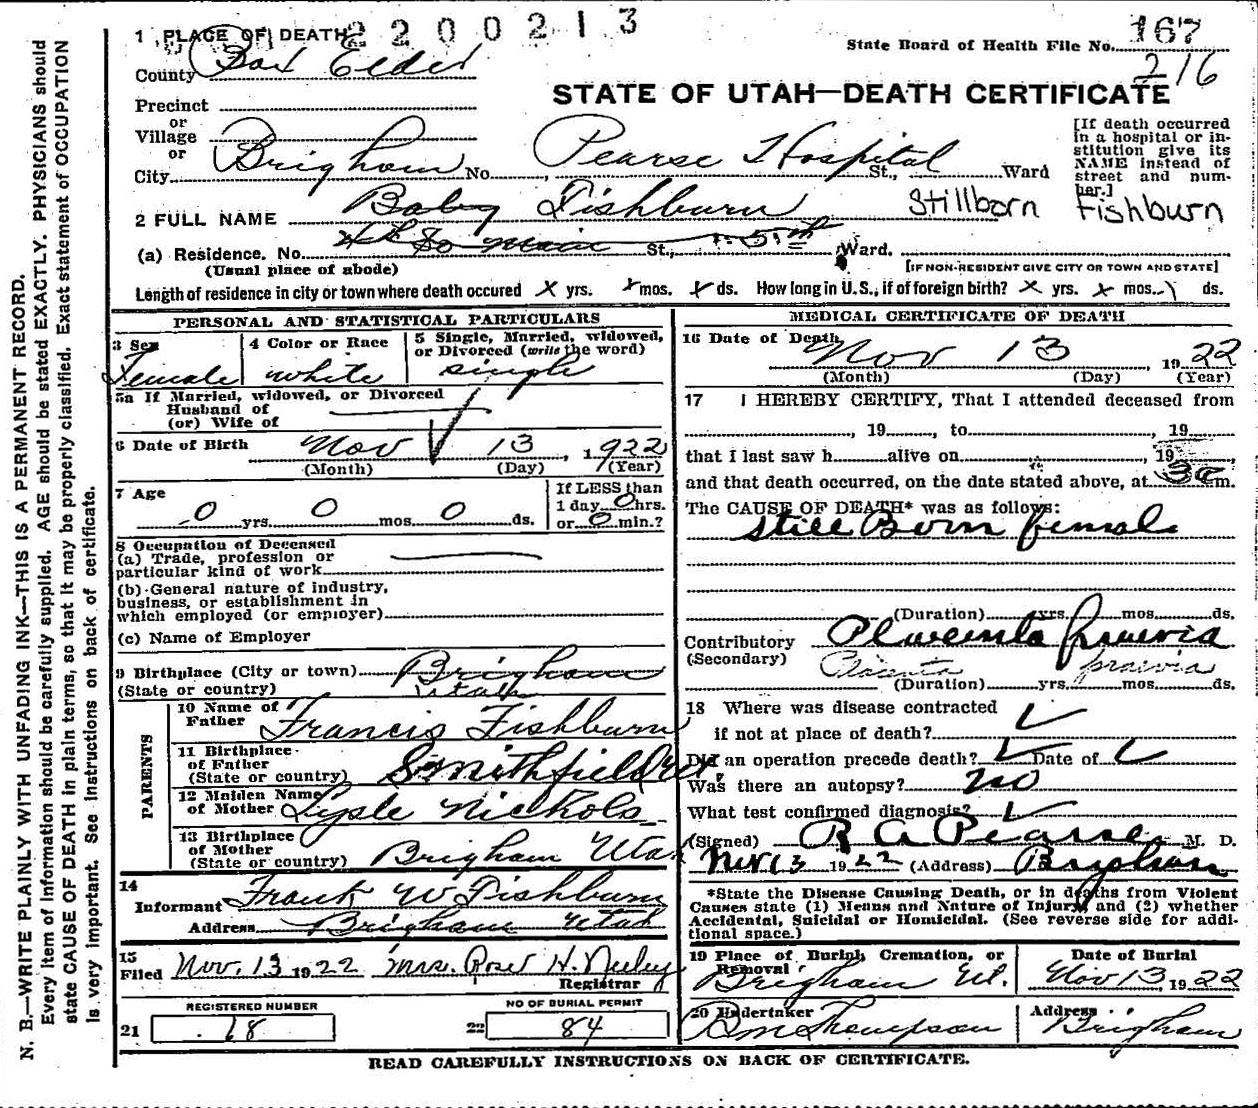 2200213
1 PLACE OF DEATH
State Board of Health File No. 167
216
County Box Elder
STATE OF UTAH—DEATH CERTIFICATE
Precinct
or
Village
or
City Brigham No. Pearse Hospital St., Ward
[If death occurred
in a hospital or in-
stitution give its
NAME instead of
street and num-
ber.]
2 FULL NAME Baby Fishburn Stillborn Fishburn
(a) Residence. No. So Main St., Ward.
(Usual place of abode) [IF NON-RESIDENT GIVE CITY OR TOWN AND STATE]
Length of residence in city or town where death occured x yrs. x mos. x ds. How long in U.S., if of foreign birth? x yrs. x mos. ds.
PERSONAL AND STATISTICAL PARTICULARS
3 Sex 4 Color or Race 5 Single, Married, widowed,
or Divorced (write the word)
Female white single
5a If Married, widowed, or Divorced
Husband of
(or) Wife of
6 Date of Birth Nov 13, 1922
(Month) (Day) (Year)
7 Age If LESS than
1 day 0 hrs.
0 yrs. 0 mos. 0 ds. or 0 min.?
8 Occupation of Deceased
(a) Trade, profession or
particular kind of work
(b) General nature of industry,
business, or establishment in
which employed (or employer)
(c) Name of Employer
9 Birthplace (City or town) Brigham
(State or country) Utah
PARENTS
10 Name of
Father Francis Fishburn
11 Birthplace
of Father
(State or country) Smithfield Ut.
12 Maiden Name
of Mother Lysle Nickols
13 Birthplace
of Mother
(State or country) Brigham Utah
14
Informant Frank W Fishburn
Address Brigham Utah
15
Filed Nov. 13 1922 Mrs. Rose H. Neeley
Registrar
REGISTERED NUMBER NO OF BURIAL PERMIT
21 68 22 84
MEDICAL CERTIFICATE OF DEATH
16 Date of Death
Nov 13 1922
(Month) (Day) (Year)
17 I HEREBY CERTIFY, That I attended deceased from
, 19 , to , 19
that I last saw h alive on , 19
and that death occurred, on the date stated above, at 3 a m.
The CAUSE OF DEATH* was as follows:
Still Born female
(Duration) yrs. mos. ds.
Contributory Placenta praevia
(Secondary) Placenta praevia
(Duration) yrs. mos. ds.
18 Where was disease contracted
if not at place of death?
Did an operation precede death? Date of
Was there an autopsy? no
What test confirmed diagnosis?
(Signed) R A Pearse M. D.
Nov 13 1922 (Address) Brigham
*State the Disease Causing Death, or in deaths from Violent
Causes state (1) Means and Nature of Injury, and (2) whether
Accidental, Suicidal or Homicidal. (See reverse side for addi-
tional space.)
19 Place of Burial, Cremation, or
Removal Date of Burial
Brigham Ut. Nov 13, 1922
20 Undertaker Address
B M Thompson Brigham
READ CAREFULLY INSTRUCTIONS ON BACK OF CERTIFICATE.
N. B.—WRITE PLAINLY WITH UNFADING INK—THIS IS A PERMANENT RECORD.
Every item of information should be carefully supplied. AGE should be stated EXACTLY. PHYSICIANS should
state CAUSE OF DEATH in plain terms, so that it may be properly classified. Exact statement of OCCUPATION
is very important. See instructions on back of certificate.